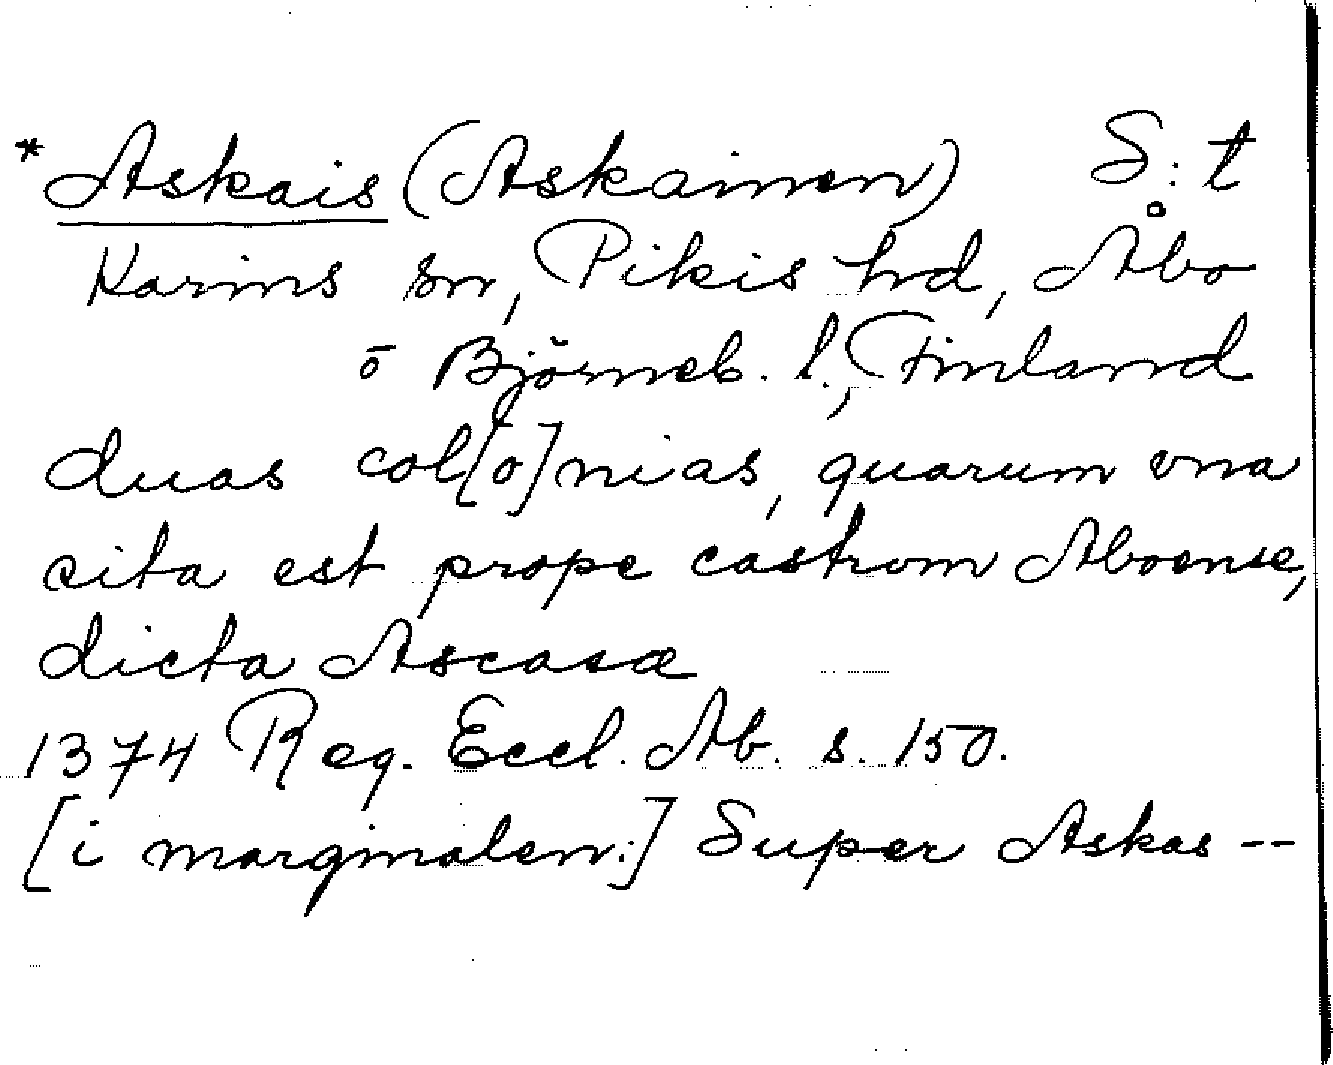 * Askais (Askainen) S:t
Karins sn, Pikis hd, Åbo
o Björneb. l., Finland
duas col[o]nias, quarum vna
sita est prope castrum Aboense,
dicta Ascasæ
1374 Reg. Eccl. Ab. s. 150.
[i marginalen:] Super Askas --